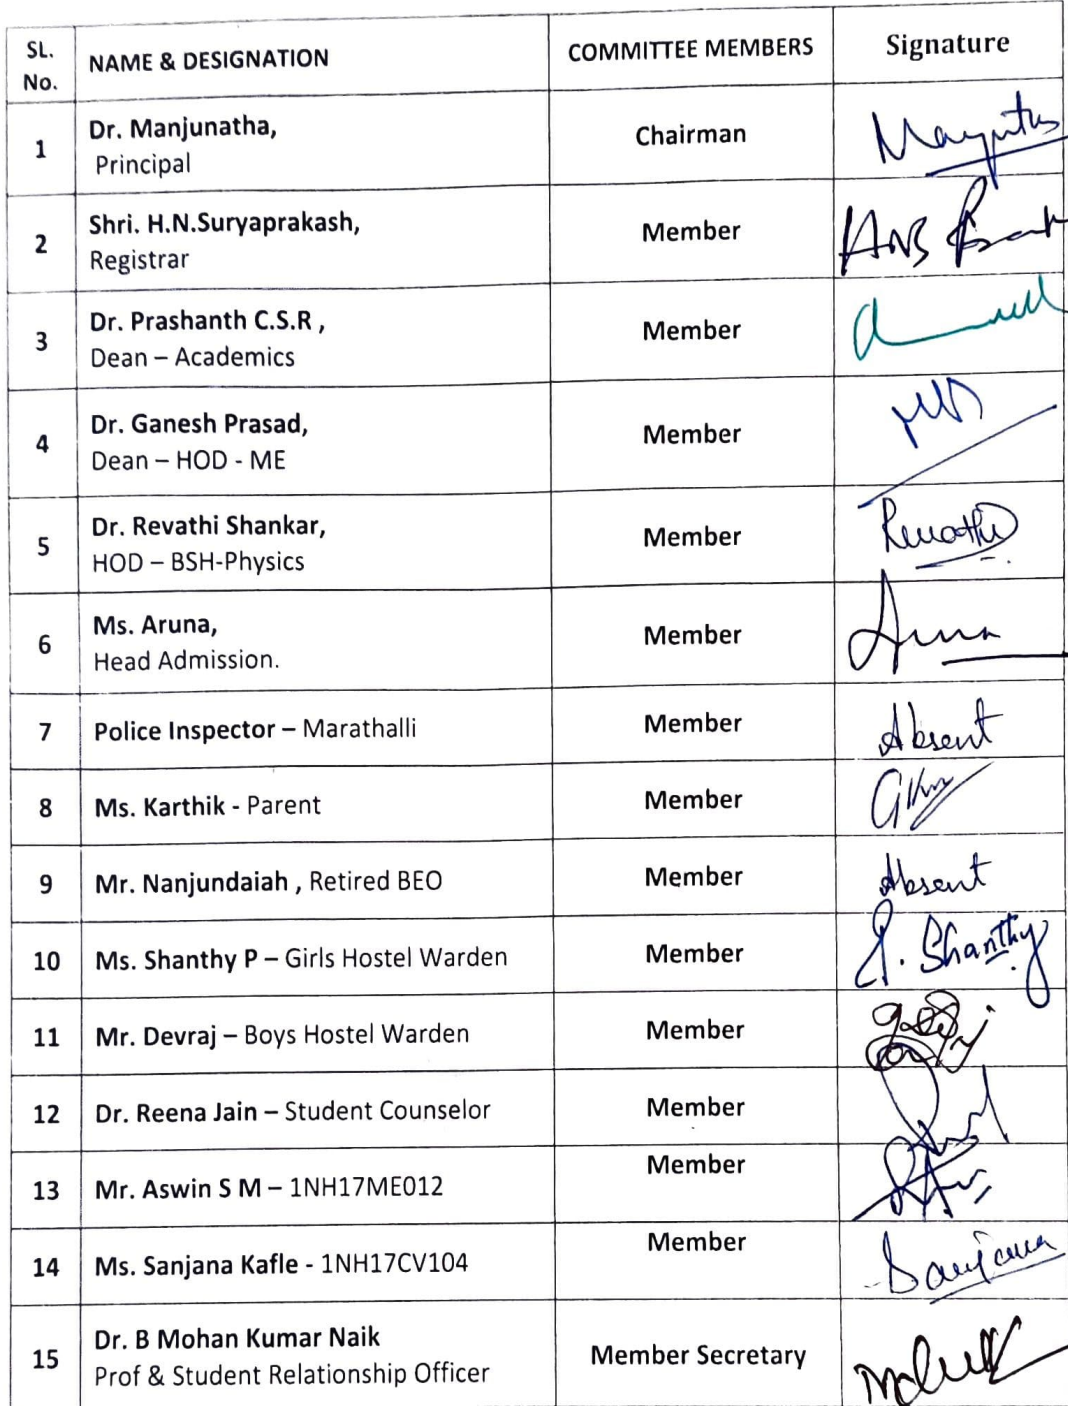 SL. No. NAME & DESIGNATION COMMITTEE MEMBERS Signature
1 Dr. Manjunatha, Principal Chairman
2 Shri. H.N.Suryaprakash, Registrar Member
3 Dr. Prashanth C.S.R , Dean – Academics Member
4 Dr. Ganesh Prasad, Dean – HOD - ME Member
5 Dr. Revathi Shankar, HOD – BSH-Physics Member Revathi
6 Ms. Aruna, Head Admission. Member Aruna
7 Police Inspector – Marathalli Member Absent
8 Ms. Karthik - Parent Member
9 Mr. Nanjundaiah , Retired BEO Member Absent
10 Ms. Shanthy P – Girls Hostel Warden Member P. Shanthy
11 Mr. Devraj – Boys Hostel Warden Member
12 Dr. Reena Jain – Student Counselor Member
13 Mr. Aswin S M – 1NH17ME012 Member
14 Ms. Sanjana Kafle - 1NH17CV104 Member Sanjana
15 Dr. B Mohan Kumar Naik Prof & Student Relationship Officer Member Secretary